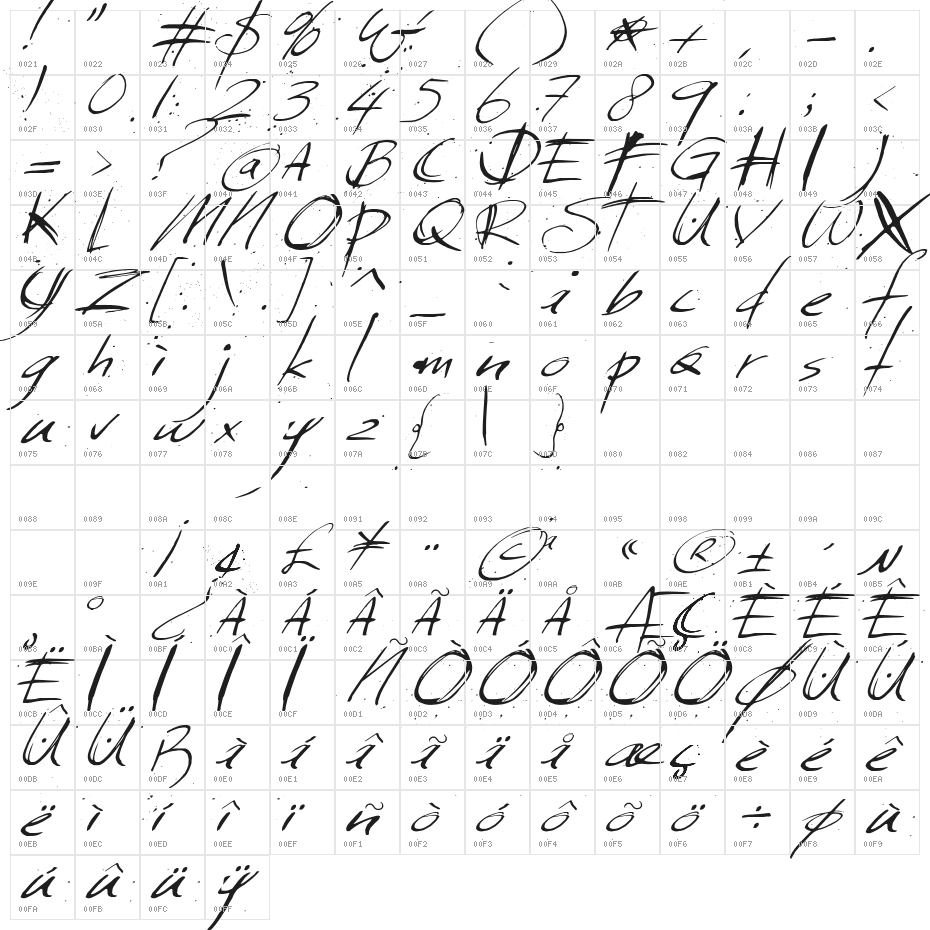 ! " # $ % & ' ( ) * + , - .
0021 0022 0023 0024 0025 0026 0027 0028 0029 002A 002B 002C 002D 002E
/ 0 1 2 3 4 5 6 7 8 9 : ; <
002F 0030 0031 0032 0033 0034 0035 0036 0037 0038 0039 003A 003B 003C
= > ? @ A B C D E F G H I J
003D 003E 003F 0040 0041 0042 0043 0044 0045 0046 0047 0048 0049 004A
K L M N O P Q R S T U V W X
004B 004C 004D 004E 004F 0050 0051 0052 0053 0054 0055 0056 0057 0058
Y Z [ \ ] ^ _ ` a b c d e f
0059 005A 005B 005C 005D 005E 005F 0060 0061 0062 0063 0064 0065 0066
g h i j k l m n o p q r s t
0067 0068 0069 006A 006B 006C 006D 006E 006F 0070 0071 0072 0073 0074
u v w x y z { | }
0075 0076 0077 0078 0079 007A 007B 007C 007D 0080 0082 0084 0086 0087
0088 0089 008A 008C 008E 0091 0092 0093 0094 0095 0098 0099 009A 009C
¡ ¢ £ ¥ ¨ © ª « ® ± ´ µ
009E 009F 00A1 00A2 00A3 00A5 00A8 00A9 00AA 00AB 00AE 00B1 00B4 00B5
¸ º ¿ À Á Â Ã Ä Å Æ Ç È É Ê
00B8 00BA 00BF 00C0 00C1 00C2 00C3 00C4 00C5 00C6 00C7 00C8 00C9 00CA
Ë Ì Í Î Ï Ñ Ò Ó Ô Õ Ö Ø Ù Ú
00CB 00CC 00CD 00CE 00CF 00D1 00D2 00D3 00D4 00D5 00D6 00D8 00D9 00DA
Û Ü ß à á â ã ä å æ ç è é ê
00DB 00DC 00DF 00E0 00E1 00E2 00E3 00E4 00E5 00E6 00E7 00E8 00E9 00EA
ë ì í î ï ñ ò ó ô õ ö ÷ ø ù
00EB 00EC 00ED 00EE 00EF 00F1 00F2 00F3 00F4 00F5 00F6 00F7 00F8 00F9
ú û ü ÿ
00FA 00FB 00FC 00FF